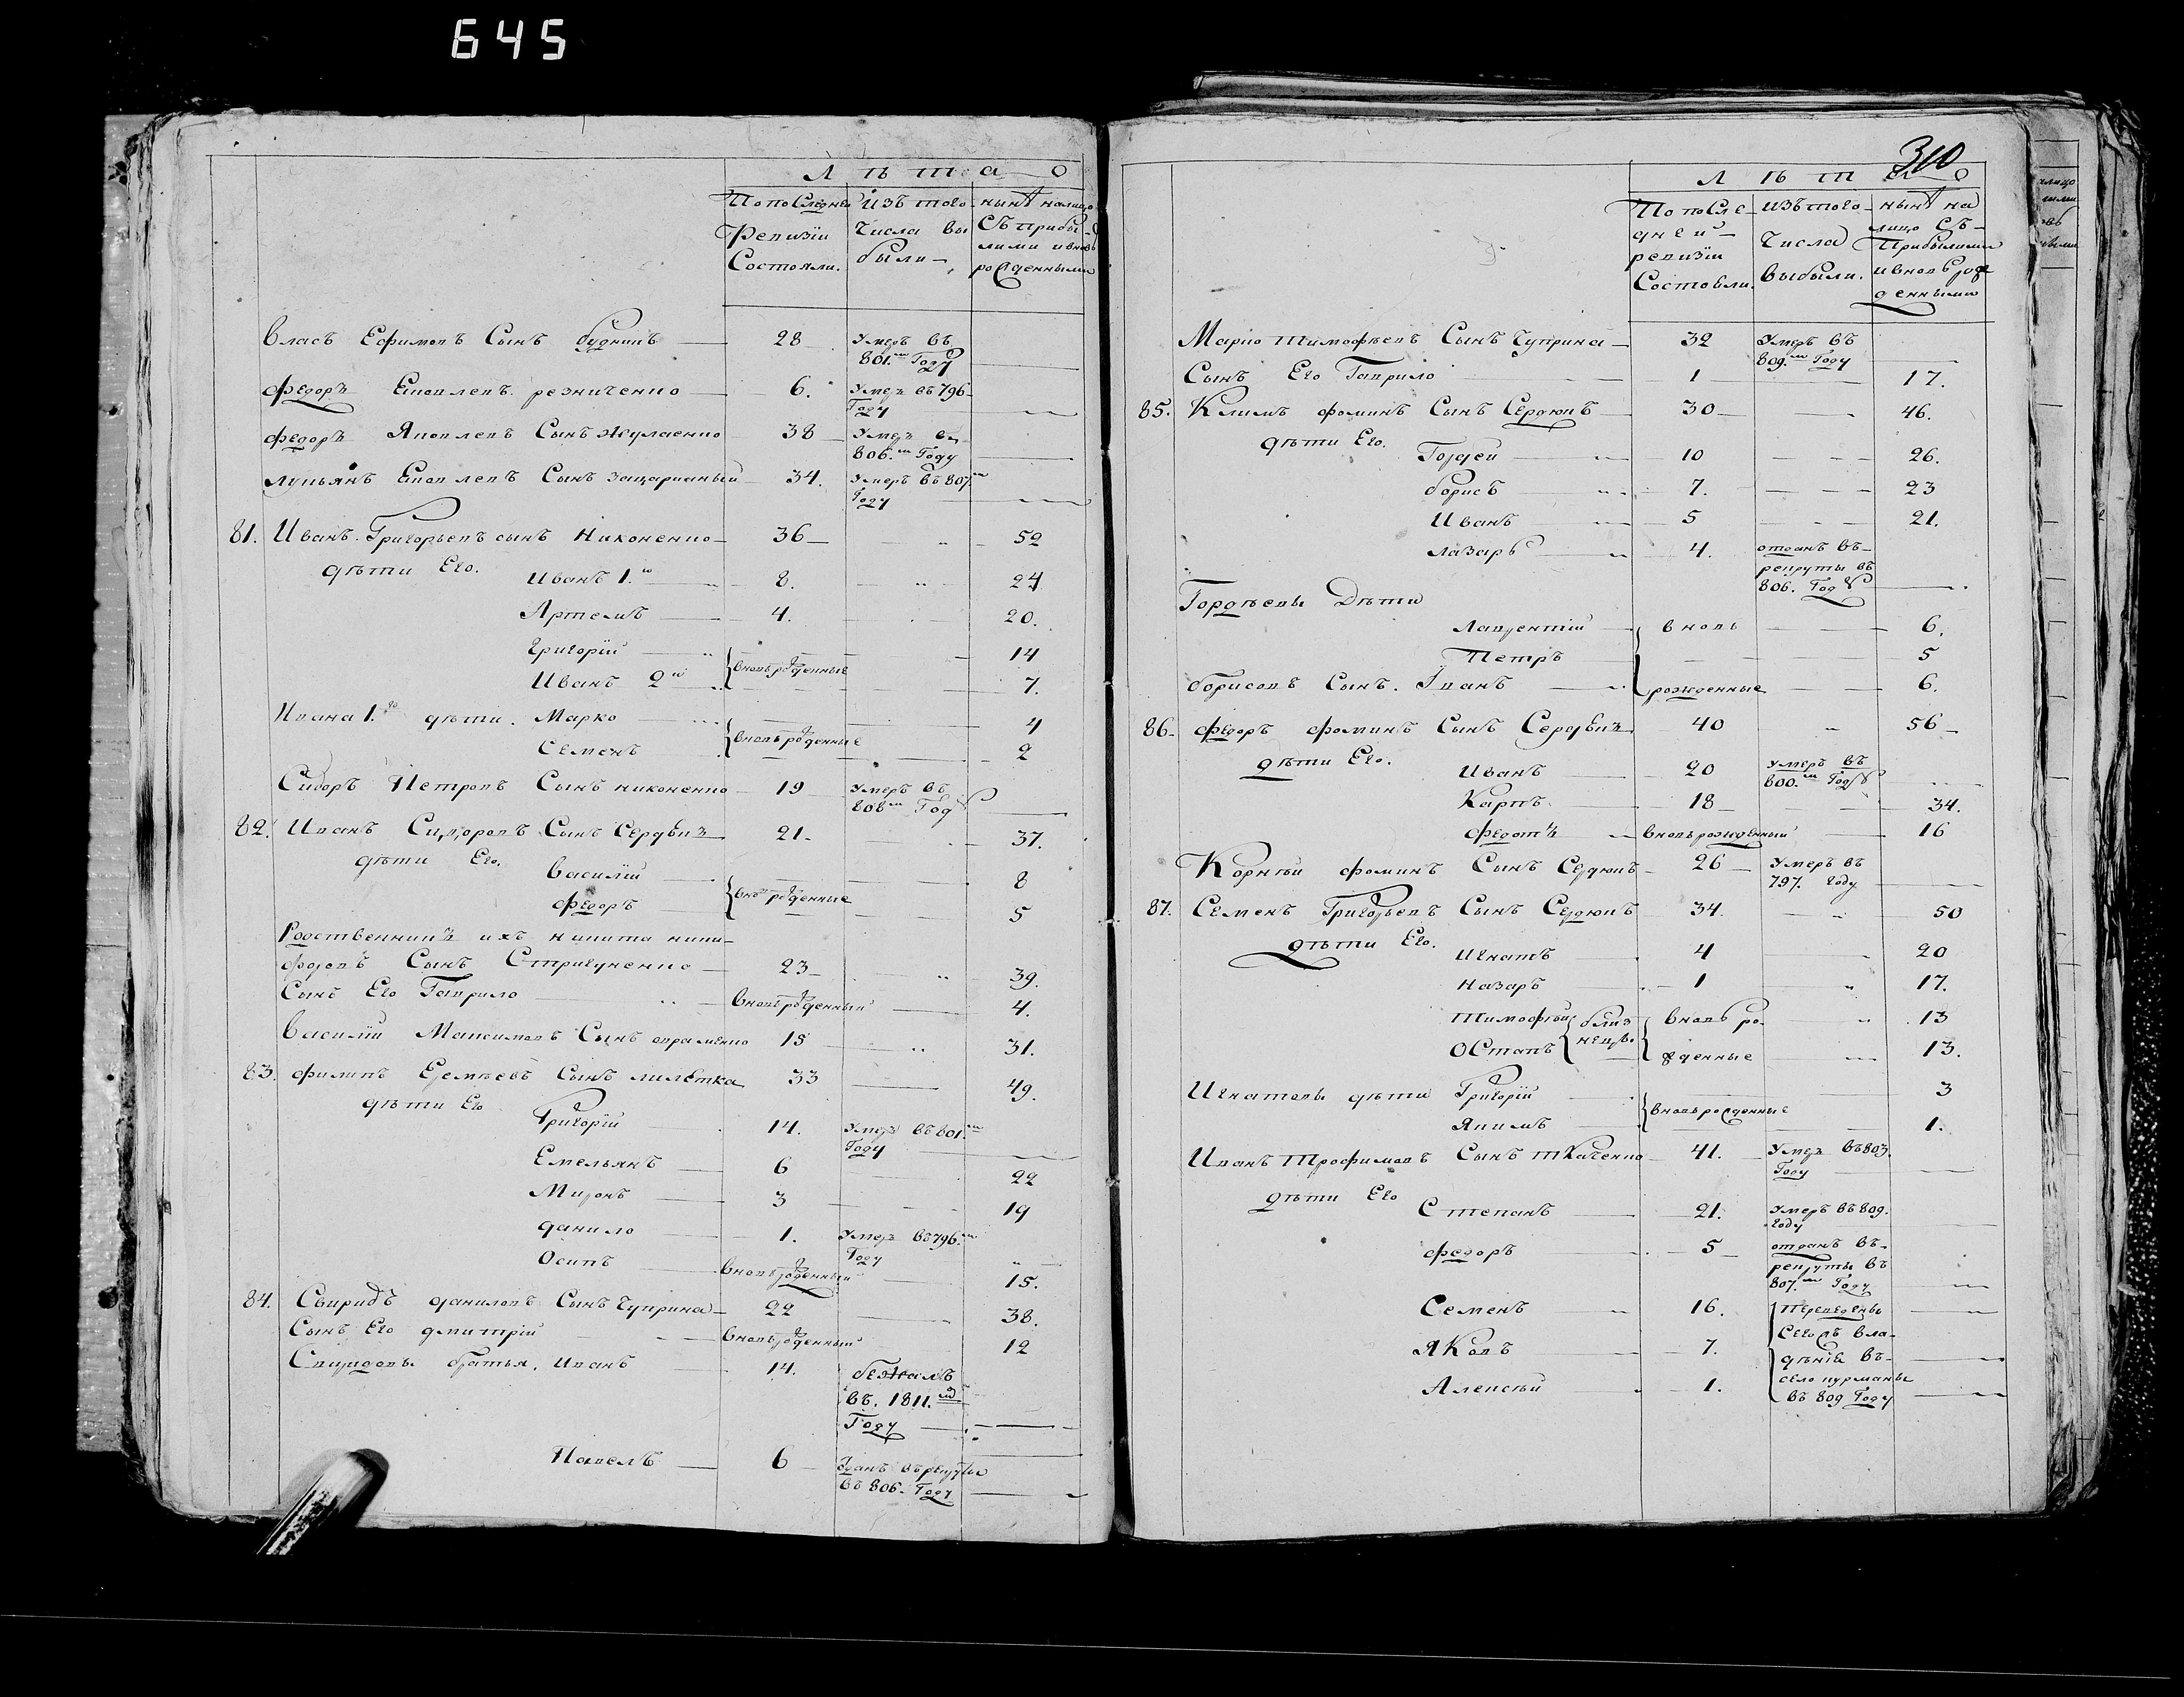 645
Л ѣ т а
По последней изъ того ныне налицо
Ревизіи числа вы съ прибы-
Состояли. были лими и вновь
рожденными
Власъ Ефимовъ Сынъ будникъ 28 Умеръ въ
801.м Году
Федоръ Яковлевъ резниченко 6. Умеръ въ 796
Году
Федоръ Яковлевъ Сынъ 38 Умеръ въ
806.м Году
Лукьянъ Яковлевъ Сынъ 34. Умеръ въ 807.м
Году
81. Иванъ Григорьевъ сынъ Никоненко 36 52
дѣти Его. Иванъ 1.й 8. 24
Артемъ 4. 20.
Григорій 14
вновьрожденные
Иванъ 2й 7.
Ивана 1.го дѣти. Марко 4
вновьрожденные
Семенъ 2
Сидоръ Петровъ Сынъ никоненко 19 Умеръ въ
808м Году
82. Иванъ Сидоровъ Сынъ Сердюкъ 21. 37.
дѣти Его. Василій 8
вновьрожденные
Федоръ 5
Родственникъ ихъ никита ники-
форовъ Сынъ Стригуненко 23 39.
Сынъ Его Гаврило вновьрожденный 4.
Василій Максимовъ Сынъ авраменко 15 31.
83. Филипъ Еремѣевъ Сынъ 33 49.
дѣти Его
Григорій 14. Умеръ въ 801.м
Году
Емельянъ 6 22
Миронъ 3 19
данило 1. Умеръ въ 796.м
Году
Осипъ вновьрожденный 15.
84. Свиридъ даниловъ Сынъ Чуприна 22 38.
Сынъ Его дмитрій вновьрожденный 12
Свиридовы братья. Иванъ 14. бежалъ
въ. 1811.м
Году
Павелъ 6 данъ въ рекруты
въ 806. Году
310
Л ѣ т а
По после- изъ того ныне на
дней числа лицо съ
ревизіи прибылими
Состояли. выбыли. и вновь рож
денными
Марко Тимофѣевъ Сынъ Чуприна 32 Умеръ въ
809.м Году
Сынъ Его Гаврило 1 17.
85. Климъ фоминъ Сынъ Сердюкъ 30 46.
дѣти Его.
Гордей 10 26.
борисъ 7. 23
Иванъ 5 21.
лазарь 4. отданъ въ
рекруты въ
806. Году
Гордѣевы Дѣти
Лаврентій вновь 6.
Петръ 5
борисовъ Сынъ. Іванъ рожденные 6.
86. Федоръ фоминъ Сынъ Сердюкъ 40 56
дѣти Его. Иванъ 20 Умеръ въ
800.м Году
Карпъ 18 34.
Федотъ вновьрожденный 16
Корнѣй фоминъ Сынъ Сердюкъ 26 Умеръ въ
797. Году
87. Семенъ Григорьевъ Сынъ Сердюкъ 34. 50
дѣти Его. Игнатъ 4 20
Назаръ 1 17.
Тимофѣй близ вновь ро- 13
Остапъ нецы жденные 13.
Игнатовы дѣти Григорій 3
вновьрожденные
Якимъ 1.
Иванъ Трофимовъ Сынъ Ткаченко 41. Умеръ въ 803.
Году
дѣти Его Степанъ 21. Умеръ въ 809.
Году
Федоръ 5 отданъ въ
рекруты въ
807.м Году
Семенъ 16. переведены
Сего въ вла-
Яковъ 7. дѣніе въ
село курманы
Алексѣй 1. въ 809 Году